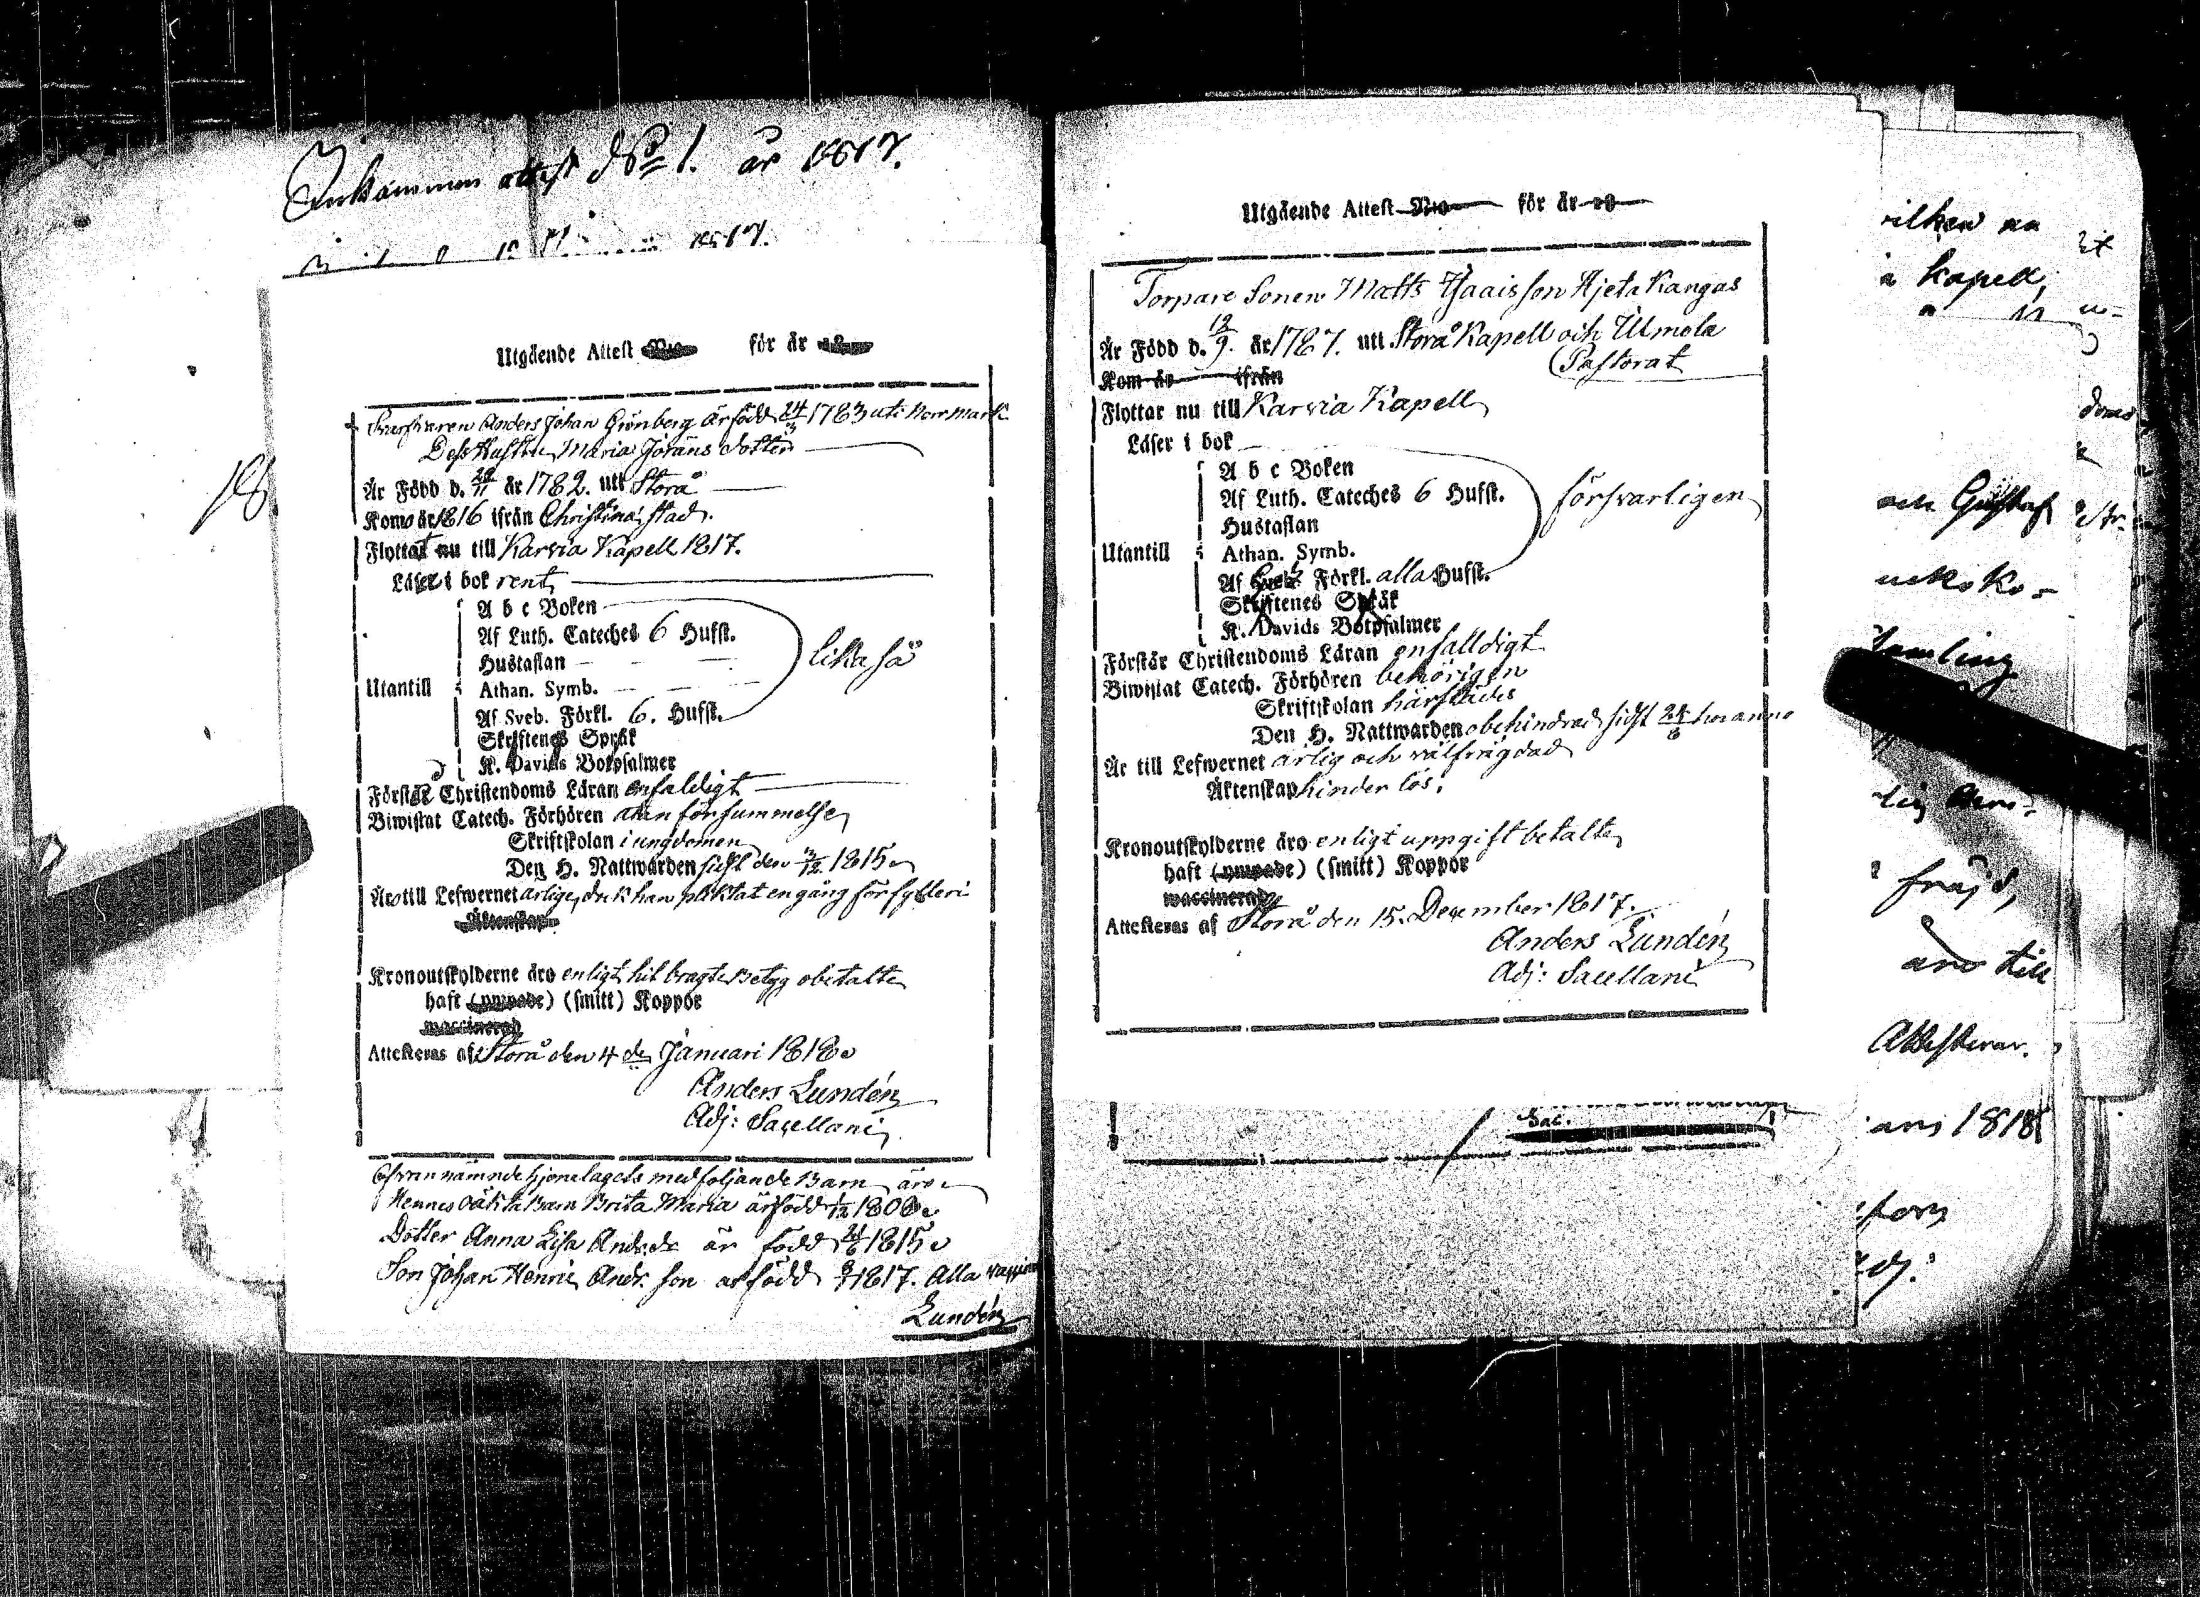 Inkommen attest No 1. år 1817.
Utgående Attest No för år 18
Svarfvaren Anders Johan Grönberg är född 24/3 1783 uti Norrmark
Dess Hustru Maria Jörans dotter
Är Född d. 29/11 år 1782. utt Storå
Komo år 1816 ifrån Christina stad.
Flyttat nu till Karvia Kapell 1817.
Läser i bok rent
A b c Boken
Af Luth. Cateches 6 Hufst.
Hustaflan
likaså
Utantill
Athan. Symb.
Af Sveb. Förkl. 6. Hufst.
Skriftenes Språk
K. Davids Botpsalmer
Förstår Christendoms Läran enfaldigt
Biwistat Catech. Förhören utan försummelse
Skriftskolan i ungdomen
Den H. Nattwarden sidst den 3/12 1815
Äro till Lefwernet ärlige, dock han pliktat en gång för fylleri
Äktenskap
Kronoutskylderne äro enligt hit bragte Betyg obetalte
haft (ympade) (smitt) Koppor
waccinerad
Attesteras af Storå den 4 de Januari 1818
Anders Lundén
Adj: Sacellani
Ofvan nämnde hjonelagets medföljande Barn äro
Hennes oäkta Barn Brita Maria är född 1/12 1808
Dotter Anna Lisa Andr. dr är född 24/6 1815
Son Johan Henric Andr. son är född 1817. Alla
Lundén
Utgående Attest No för år 18
Torpare Sonen Matts Isaaisson Hjeta Kangas
Är Född d. 12/9. år 1787. utt Storå Kapell och Ulmola
Pastorat
Kom år ifrån
Flyttar nu till Karvia Kapell
Läser i bok
A b c Boken
Af Luth. Cateches 6 Hufst.
försvarligen
Hustaflan
Utantill
Athan. Symb.
Af Sveb. Förkl. alla Hufst.
Skriftenes Språk
K. Davids Botpsalmer
Förstår Christendoms Läran enfalldigt
Biwistat Catech. Förhören behörigen
Skriftskolan härstädes
Den H. Nattwarden obehindrad sidst 24/6 hoc anno
Är till Lefwernet ärlig och välfrägdad
Äktenskap hinder lös.
Kronoutskylderne äro enligt uppgift betalte
haft (ympade) (smitt) Koppor
waccinerad
Attesteras af Storå den 15. December 1817.
Anders Lundén
Adj: Sacellani
Sac.
kapell,
och Gustaf
fräjd,
äro till
Attesterar.
1818